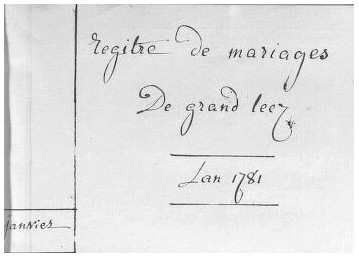 regitre de mariages
De grand leez
Lan 1781
janvier